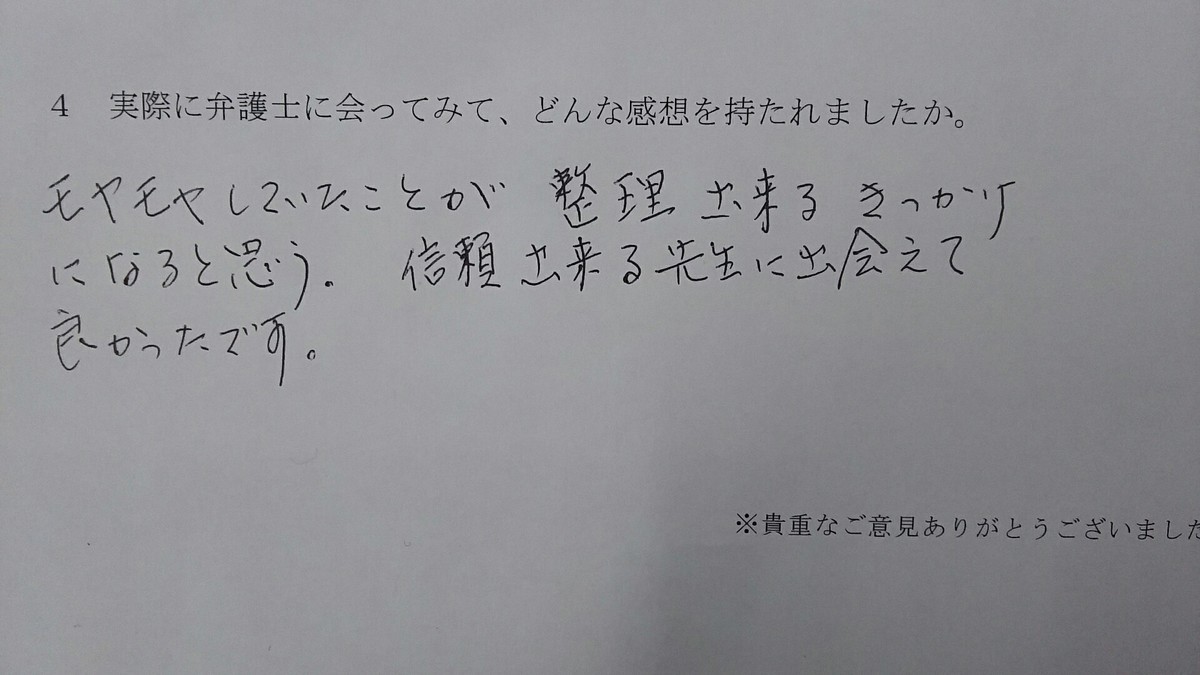 4 実際に弁護士に会ってみて、どんな感想を持たれましたか。
モヤモヤしていたことが 整理 出来る きっかけ
になると思う。 信頼 出来る先生に出会えて
良かったです。
※貴重なご意見ありがとうございました